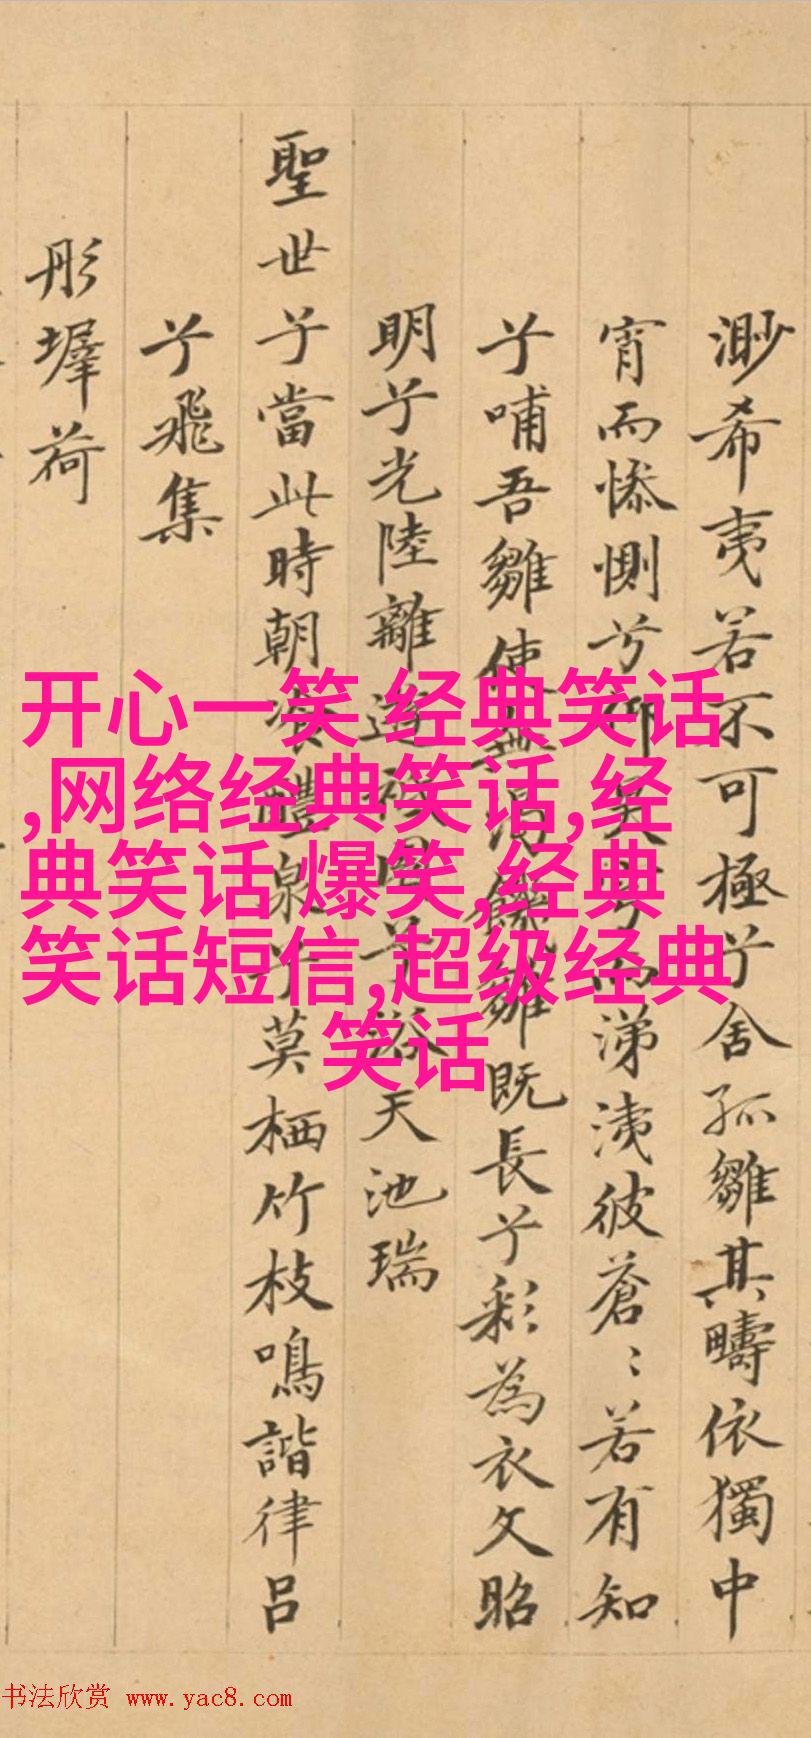 渺希夷若不可極兮舍孤雛其疇依獨中
宵而慘惻兮仰昊穹而涕洟彼蒼〻若有知
兮哺吾雛使無渴饑雛既長兮彩為衣文昭
明兮光陸離遊兮浴天池瑞
聖世兮當此時朝飡醴泉兮莫栖竹枝鳴諧律呂
兮飛集
彤墀荷
开心一笑 经典笑话
,网络经典笑话,经
典笑话 爆笑,经典
笑话短信,超级经典
笑话
书法欣赏 www.yac8.com